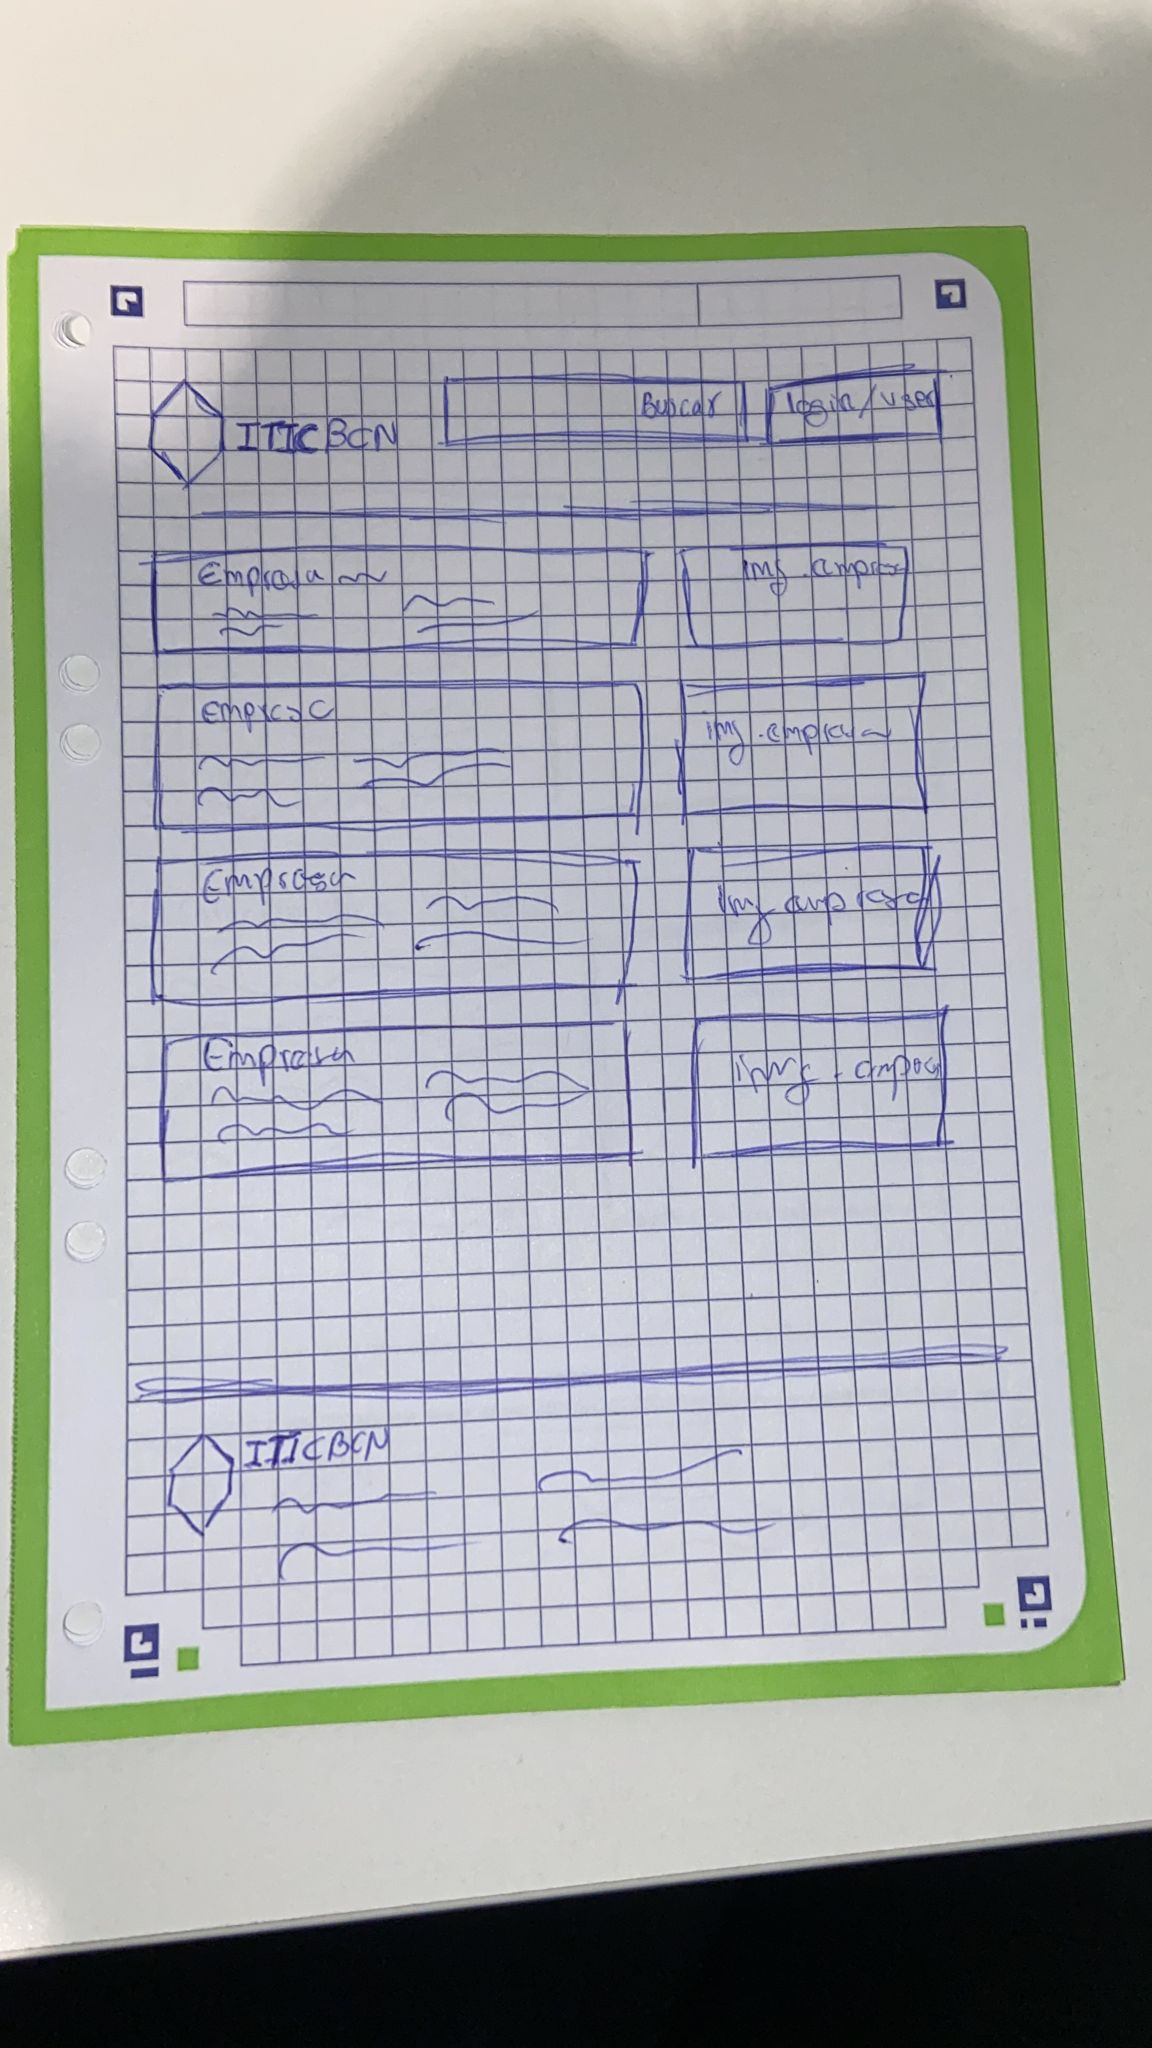 ITICBCN
Buscar
login/user
Empresa
img.empresa
Empresa
img.empresa
Empresa
img.empresa
Empresa
img.empresa
ITICBCN